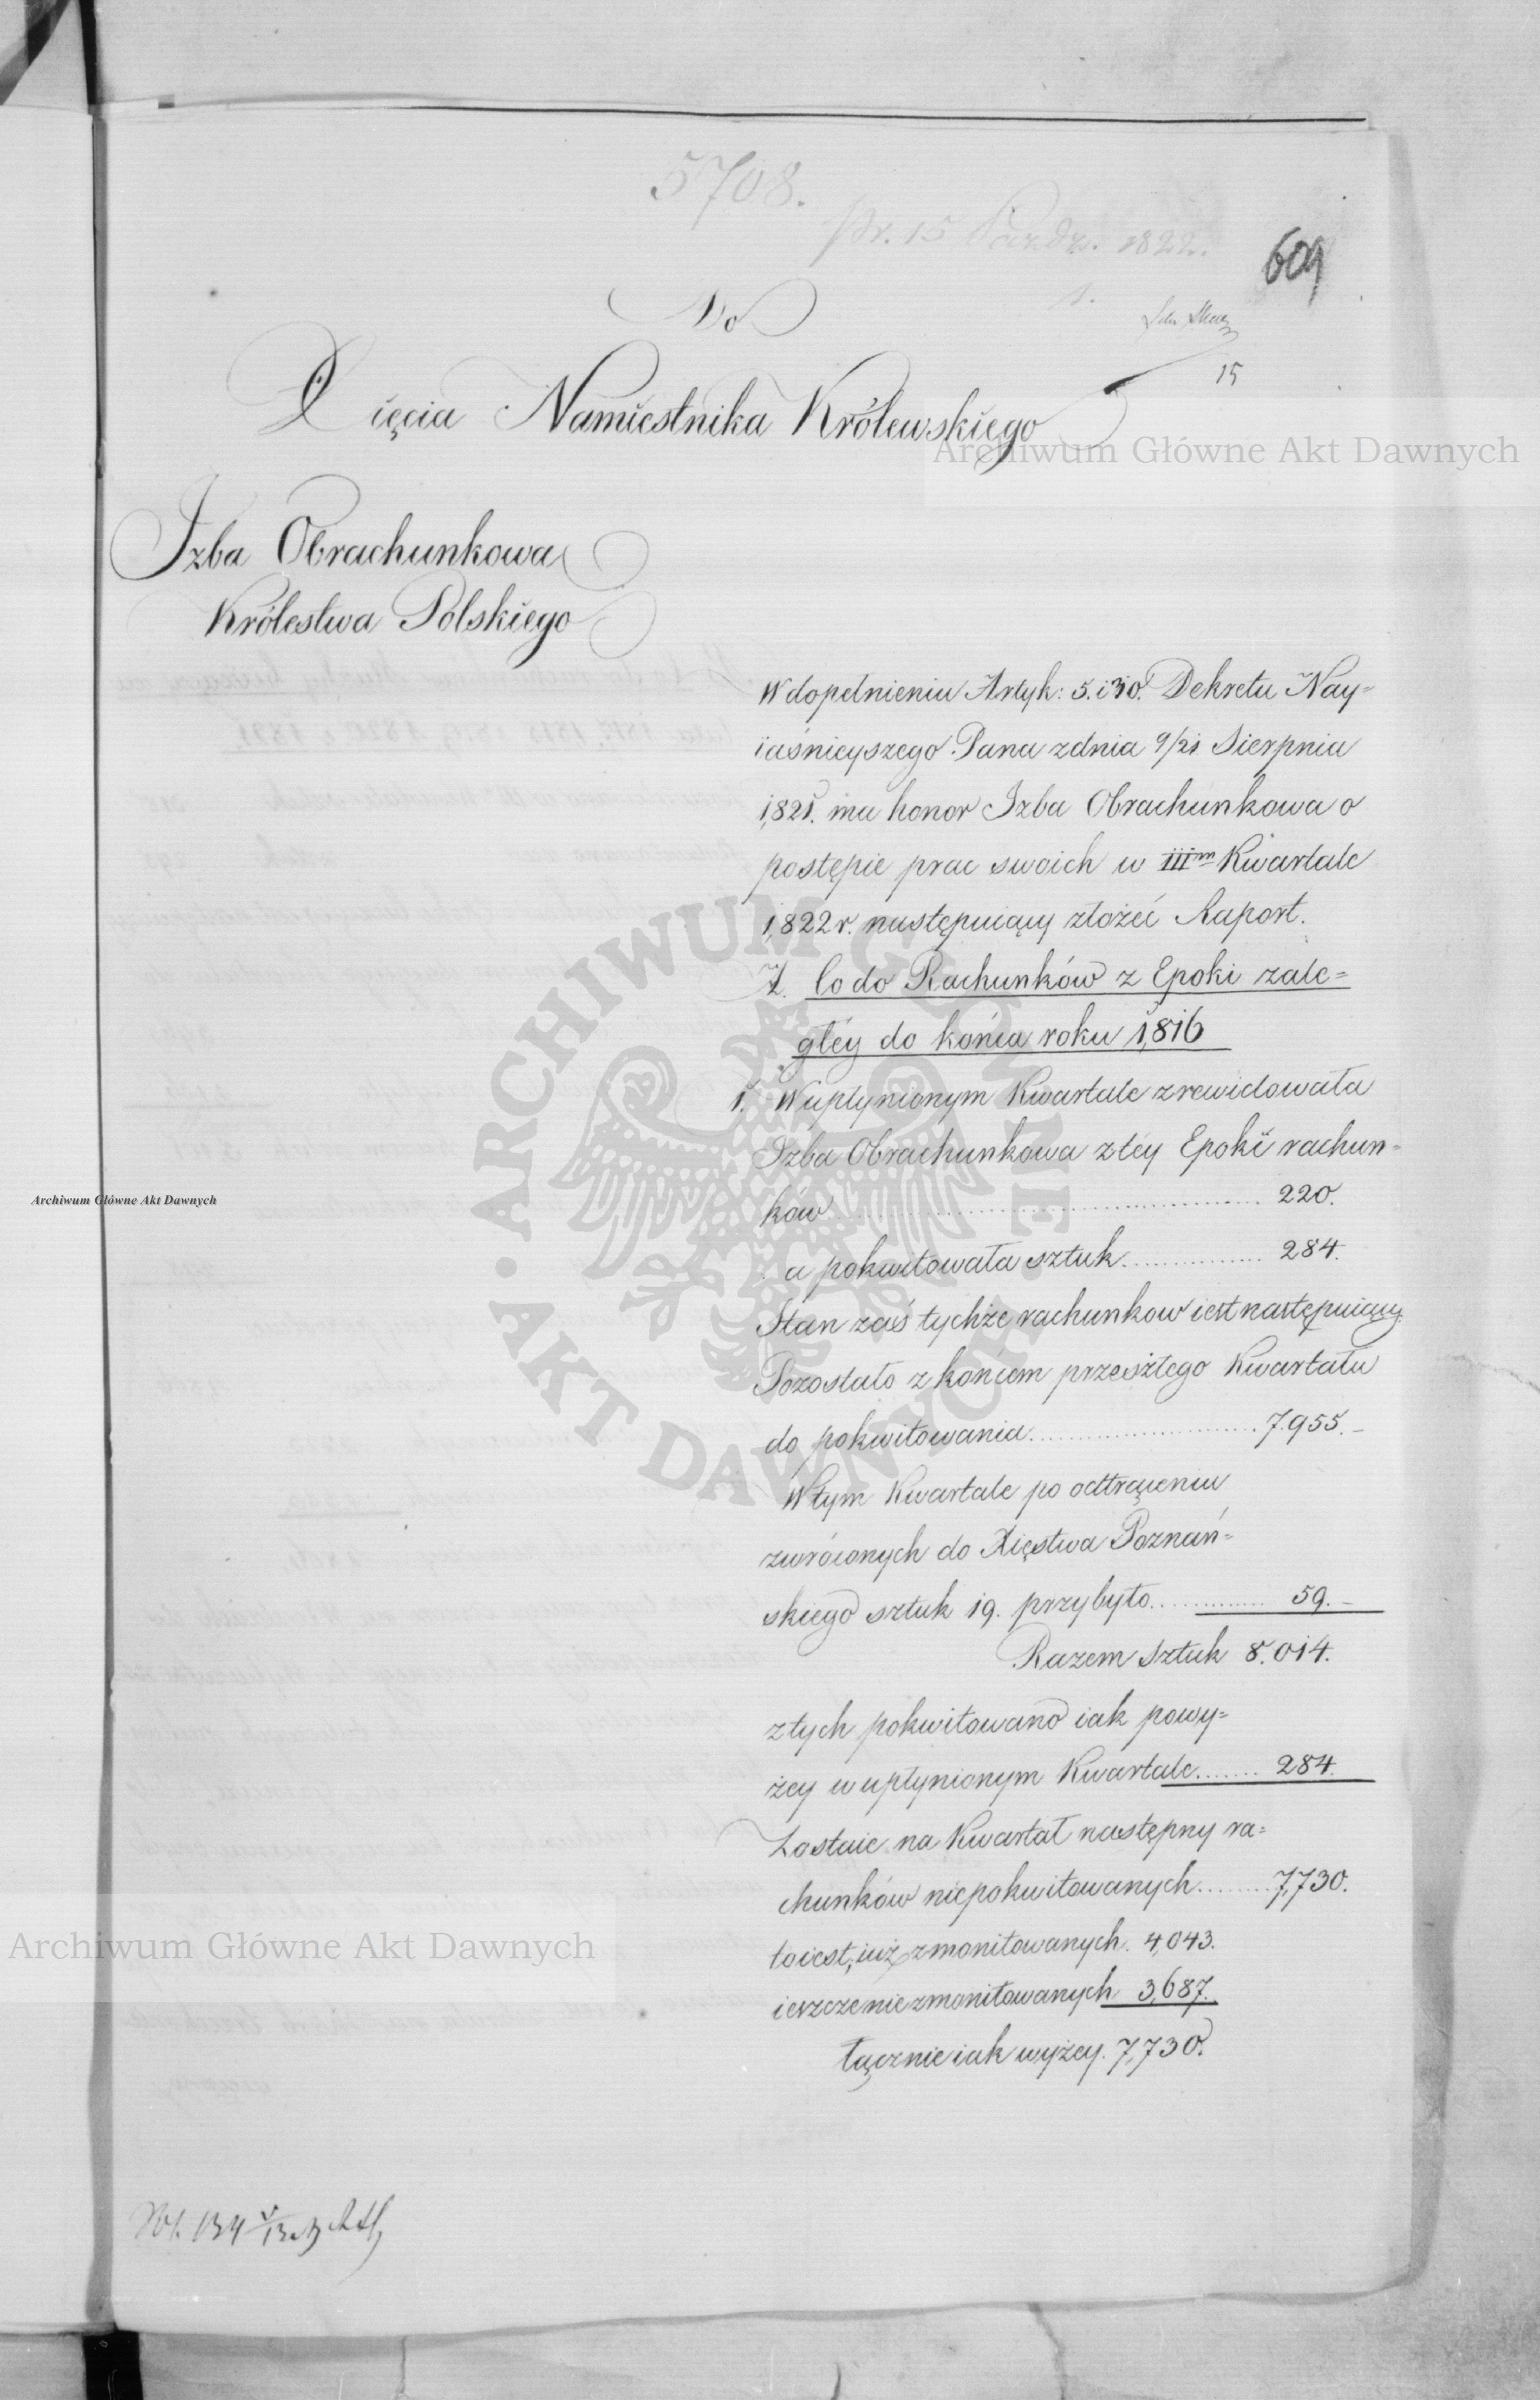 5708.
pr. 15 Paźdz. 1822.
609
Do
15
Xięcia Namiestnika Królewskiego
Archiwum Główne Akt Dawnych
Izba Obrachunkowa
Królestwa Polskiego
W dopełnieniu Artyk: 5. i 30. Dekretu Nay=
iaśnieyszego Pana z dnia 9/21 Sierpnia
1,821. ma honor Izba Obrachunkowa o
postępie prac swoich w IIIm Kwartale
1,822 r. następuiący złożeć Raport.
I. Co do Rachunków z Epoki zale=
głéy do końca roku 1,816
1. W upłynionym Kwartale zrewidowała
Izba Obrachunkowa z téy Epoki rachun=
ków 220.
Archiwum Główne Akt Dawnych
a pokwitowała sztuk 284.
Stan zaś tychże rachunkow iest następuiący:
Pozostało z końcem przeszłego Kwartału
do pokwitowania 7.955.–
W tym Kwartale po odtrąceniu
zwróconych do Xięstwa Poznań=
skiego sztuk 19. przybyło 59.–
Razem sztuk 8.014.
z tych pokwitowano iak powy=
żey w upłynionym Kwartale 284.
Zostaie na Kwartał następny ra=
chunków niepokwitowanych 7,730.
to iest, iuż zmonitowanych. 4,043.
ieszcze niezmonitowanych 3,687.
łącznie iak wyżey. 7,730.
ARCHIWUM GŁÓWNE
AKT DAWNYCH
Archiwum Główne Akt Dawnych